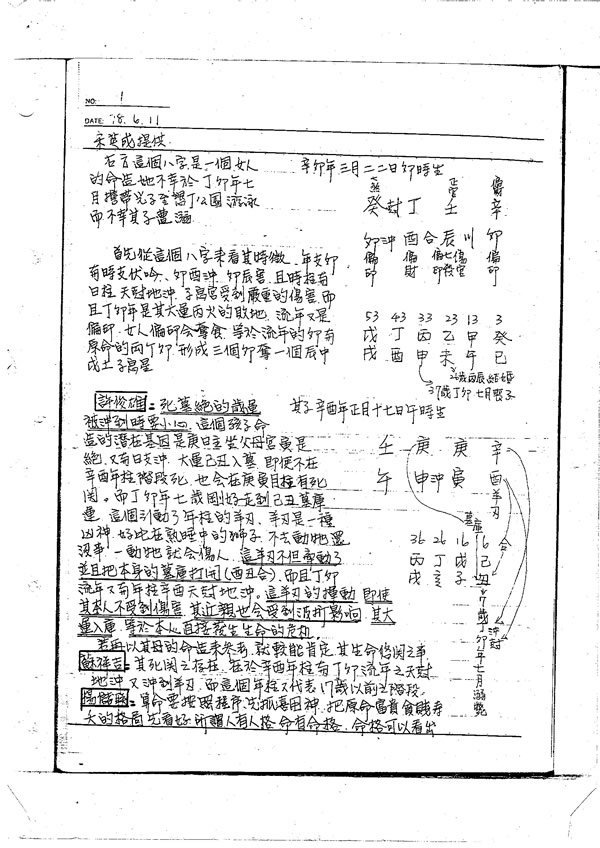 NO. 1
DATE. 78.6.11
宋英成提供
右言這個八字是一個女人
的命造她不幸於丁卯年七
月攜帶兒子至鴨丁公園游泳
而不幸其子遭溺
首先從這個八字來看其特徵、年支卯
有時支伏吟、卯酉沖、卯辰害、且時柱有
日柱天尅地沖、子宮受到嚴重的傷害、而
且丁卯年是其大運丙火的敗地、流年又是
偏印、女人偏印會奪食、等於流年的卯有
原命的兩個卯、形成三個卯奪一個辰中
戊土子息星
辛卯年三月二二日卯時生
癸 尅 丁 壬 辛
卯 沖 酉 合 辰 卯
偏印 偏財 偏印
53 43 33 23 13 3
戊 丁 丙 乙 甲 癸
戌 酉 申 未 午 巳
26歲丙辰結婚
37歲丁卯七月喪子
許俊雄:死墓絕的歲運
被沖到時要小心、這個孩子命
造的潛在基因是庚日主坐父母宮寅是
絕、又有日支沖、大運己丑入墓、即使不在
辛酉年柱階段死、也會在庚寅月柱有死
関、而丁卯年七歲剛好走到己丑墓庫
運、這個引動了年柱的羊刃、羊刃是一種
凶神、好比在熟睡中的獅子、不去動牠還
沒事、一動牠就會傷人、這羊刃不但帶動了
並且把本身的墓庫打開(酉丑合)、而且丁卯
流年又有年柱辛酉天尅地沖、這羊刃的擾動、即使
其本人不受到傷害、其近親也會受到波打影响、其大
運入庫、等於本人直接發生生命的危机。
其子辛酉年正月十七日午時生
壬 庚 庚 辛
午 申 沖 寅 酉
羊刃
墓庫
合
36 26 16 6
丙 丁 戊 己
戌 亥 子 丑
沖尅
7歲丁卯年七月溺斃
若再以其母的命造來參考、就較能肯定其生命攸関之事
蘇祥吉:其死関之存在、在於辛酉年柱有丁卯流年之天尅
地沖又沖到羊刃、而這個年柱又代表17歲以前之階段、
楊儲賜:算命要按照程序、先抓喜用神、把原命富貴貧賤壽
夭的格局先看好、所謂人有人格、命有命格、命格可以看出